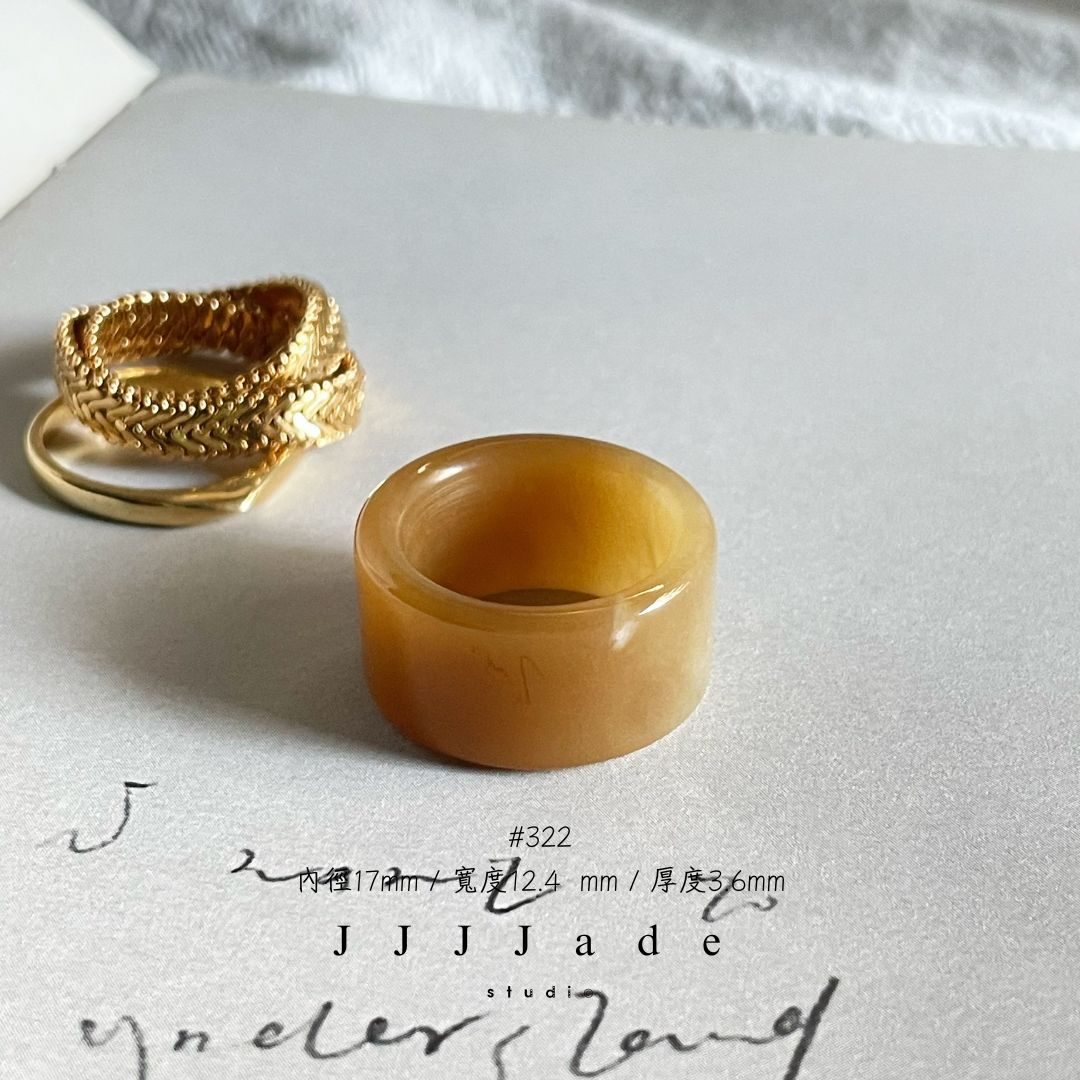 #322
內徑17mm / 寬度12.4 mm / 厚度3.6mm
JJJJade
studio
I want to
understand